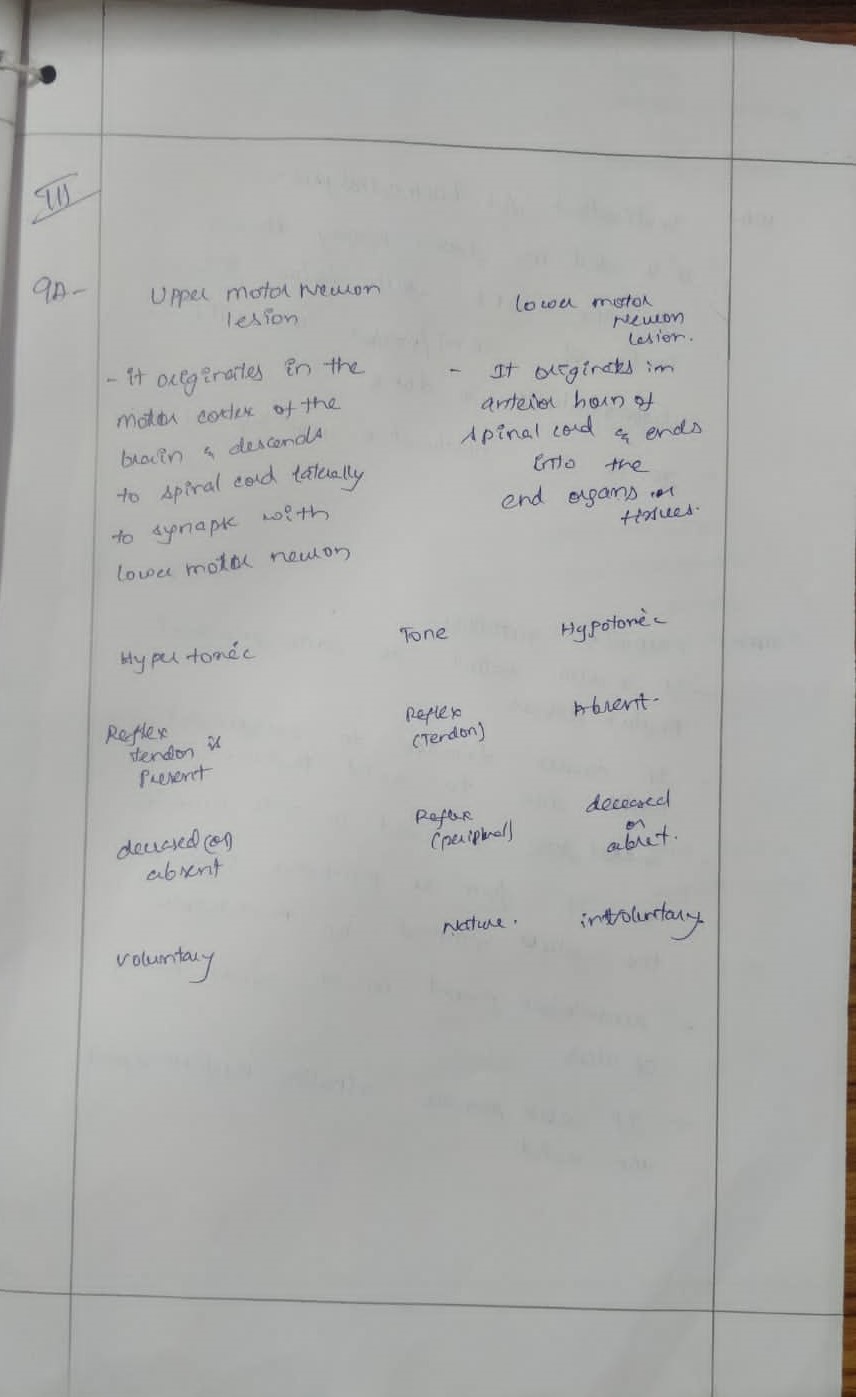 III
9A-
Upper motor Neuron
lesion
- it originates in the
motor cortex of the
brain & descends
to spiral cord laterally
to synapse with
lower motor neuron
Hypertonic
Reflex
tendon is
Present
decreased (or)
absent
voluntary
Tone
Reflex
(Tendon)
Reflex
(peripheral)
Nature.
lower motor
Neuron
lesion.
- It originates in
anterior horn of
spinal cord & ends
into the
end organs or
tissues.
Hypotonic
Absent.
decreased
or
absent.
involuntary